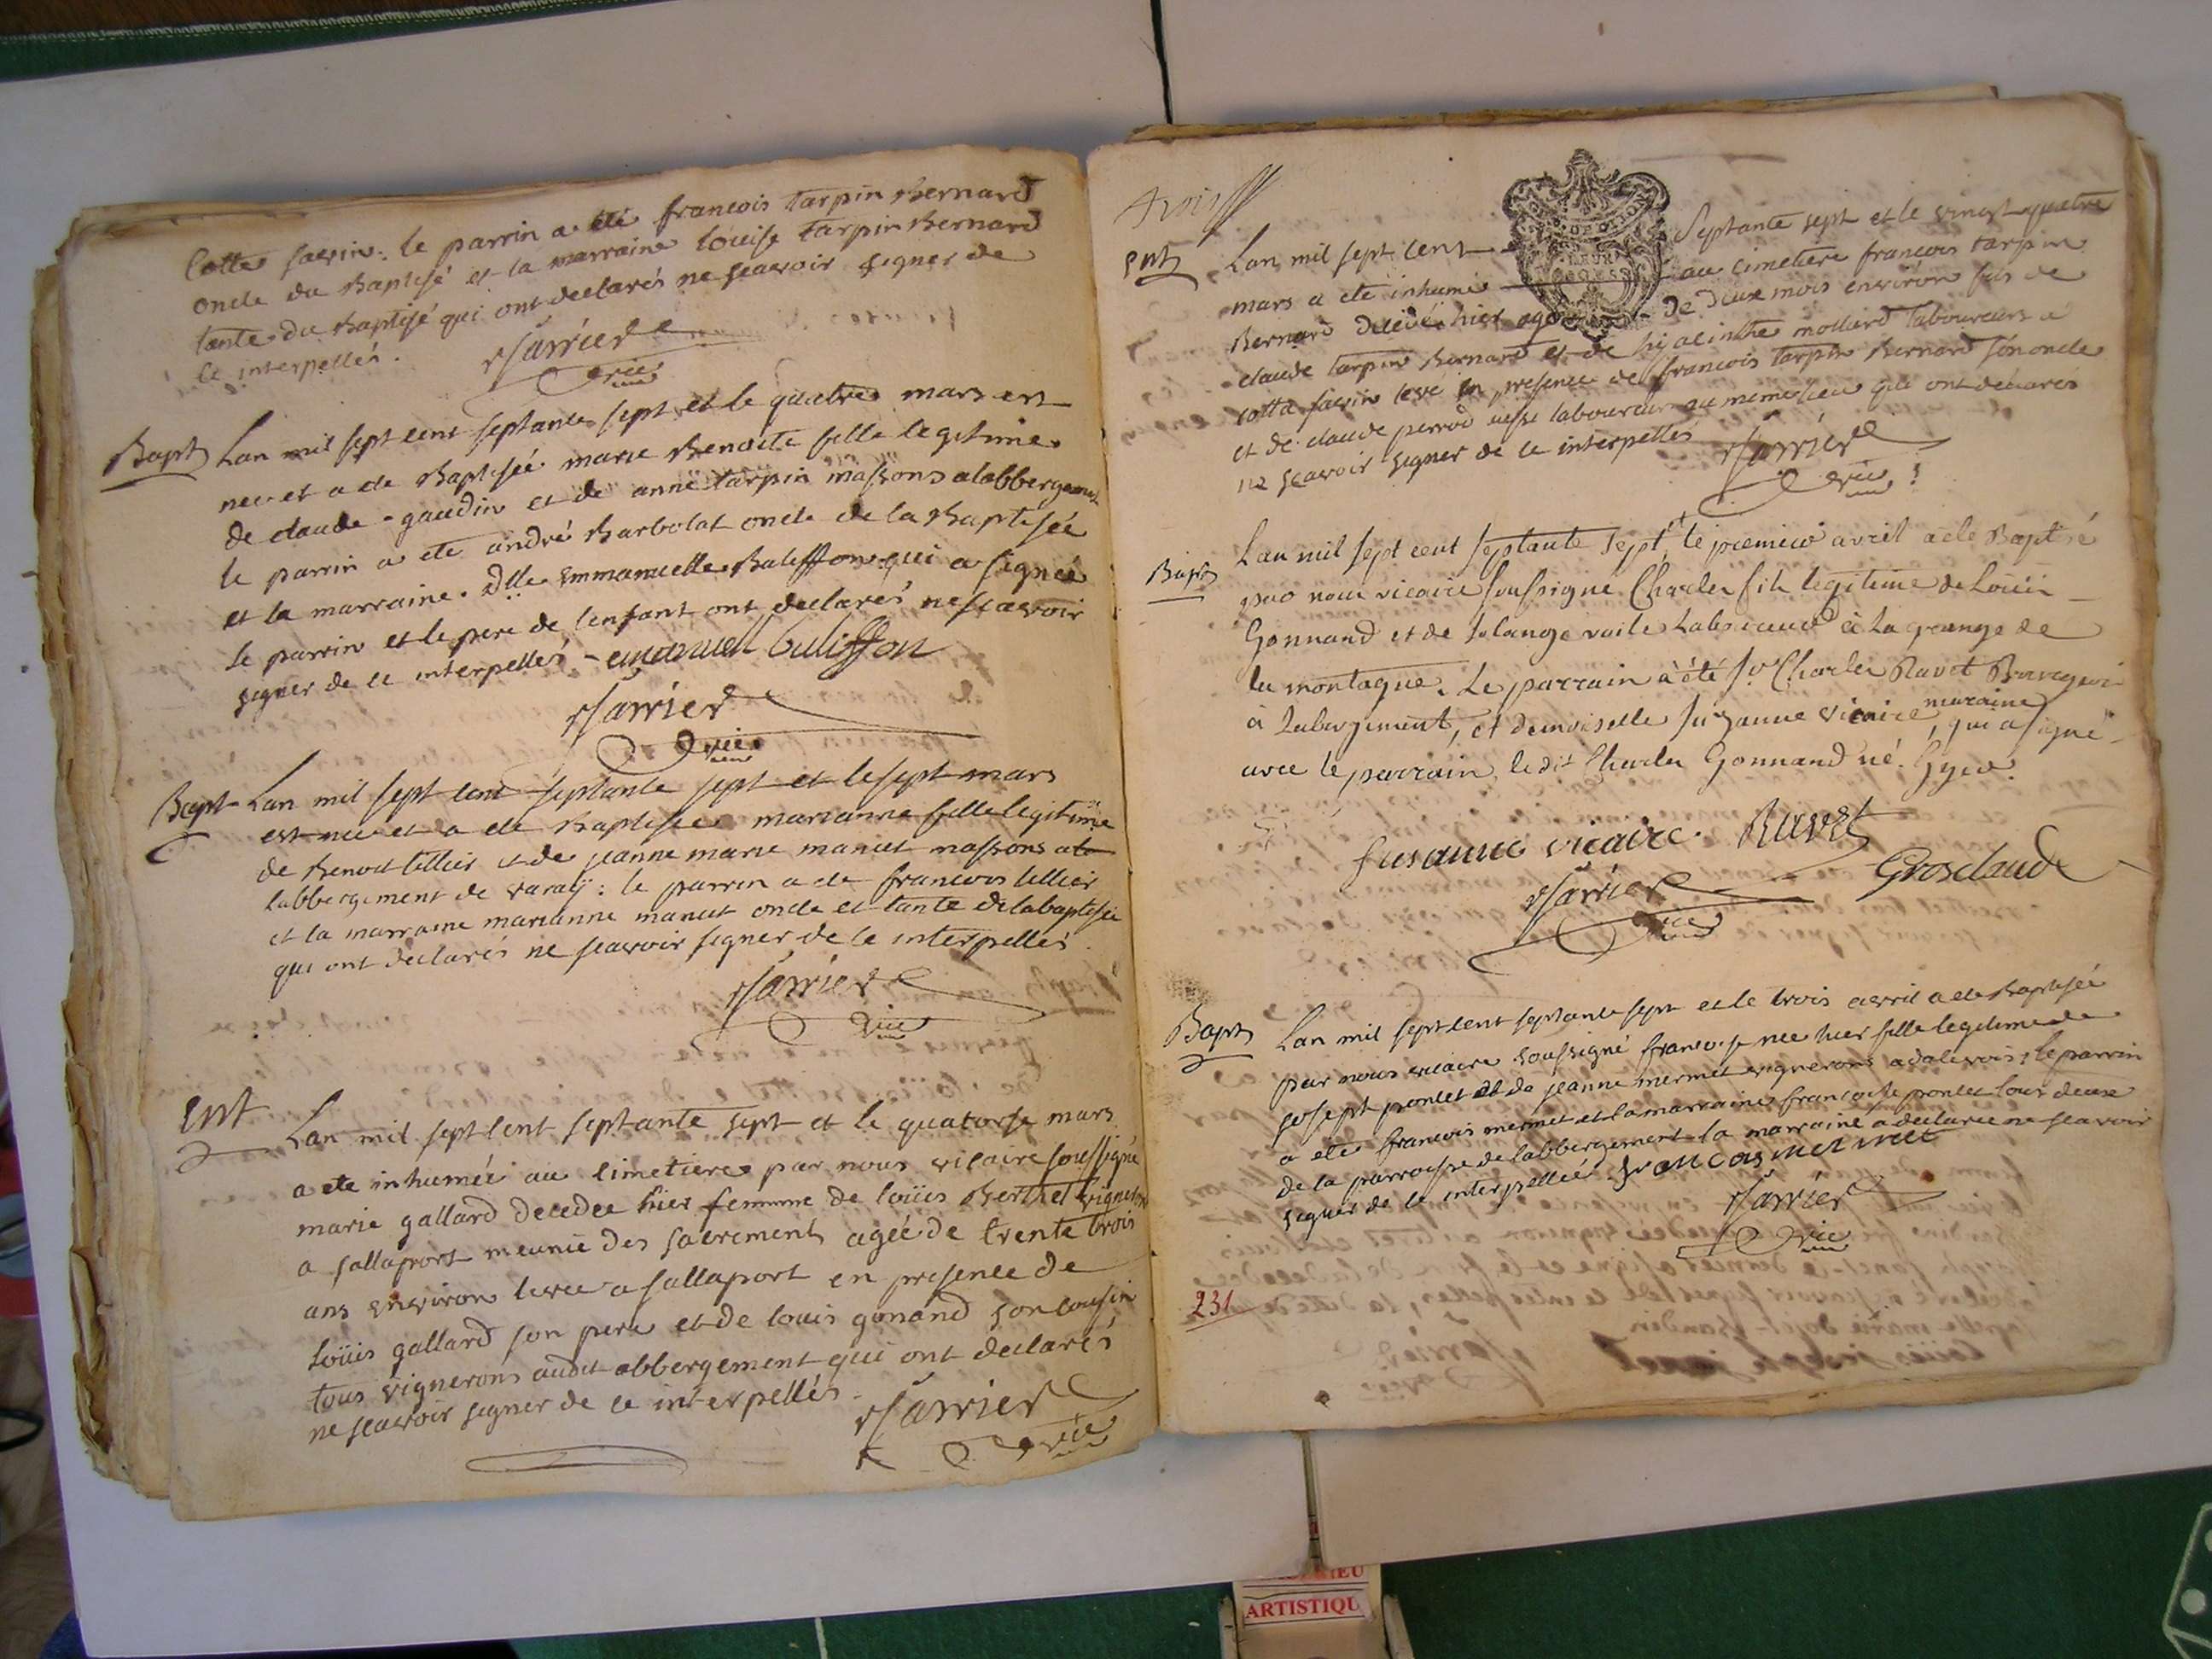 Cotta savin: le parrin a ete francois tarpin Bernard
oncle du Baptisé et la marraine louise tarpin Bernard
tante du Baptisé qui ont declarés ne scavoir signer de
ce interpellés.
Sarrier
vic
Bapt
Lan mil sept cent septante sept et le quatre mars est
neé et a ete Baptisée marie Benoite fille legitime
de claude gaudin et de anne tarpin massons a labbergement
le parrin a ete andré Barbolat oncle de la Baptisée
et la marraine Dlle Emmanuelle Baliffon qui a signée
le parrin et le pere de lenfant ont declarés ne scavoir
signer de ce interpellés - emanuell balisson
Sarrier
vic
Bapt
Lan mil sept cent septante sept et le sept mars
est neé et a ete Baptisée marianne fille legitime
de Benoit tellier et de jeanne marie manuet massons a
labbergement de varaÿ: le parrin a ete francois tellier
et la marraine marianne manuet oncle et tante de la baptisée
qui ont declarés ne scavoir signer de ce interpellés.
Sarrier
vic
Ent
Lan mil sept cent septante sept et le quatorse mars
a ete inhumée au cimetiere par nous vicaire soussigné
marie gallard decedee hier femme de loüis Berthet vigneron
a sallaport meunie des sacrements ageé de trente trois
ans environ leveé a sallaport en presence de
loüis gallard son pere et de louis gonand son cousin
tous vignerons audit abbergement qui ont declarés
ne scavoir signer de ce interpellés
Sarrier
vic
trois
Ent
Lan mil sept cent septante sept et le vingt quatre
mars a ete inhumé au cimetiere francois tarpin
Bernard decedé hier agé de deux mois environ fils de
claude tarpin Bernard et de hyacinthe mollard laboureurs a
cotta savin levé en presence de francois tarpin Bernard son oncle
et de claude perrod aussi laboureur au meme lieu qui ont declarés
ne scavoir signer de ce interpellés
Sarrier
vic
Bapt
Lan mil sept cent septante sept et le premier avril a ete Baptisé
par nous vicaire soussigné Charles fils legitime de Loüis
Gonnand et de Solange vaile Laboureurs à La grange de
la montagne. Le parrain à été Sr Charles Ravet Bourgeois
à Labergement, et demoiselle Suzanne vicaire maraine, qui a signé
avec le parrain, le dit Charles Gonnand né
susanne vicaire. Ravet
Grosclaude
Sarrier
vic
Bapt
Lan mil sept cent septante sept et le trois avril a ete Baptisée
par nous vicaire soussigné francoise neé hier fille legitime de
joseph ponlet et de jeanne mermet vignerons a dalivois; le parrin
a ete francois mermet et la marraine francoise ponlet tous deux
de la parroisse de labbergement la marraine a declareé ne scavoir
signer de ce interpelleé francois mermet
Sarrier
vic
231
ARTISTIQU